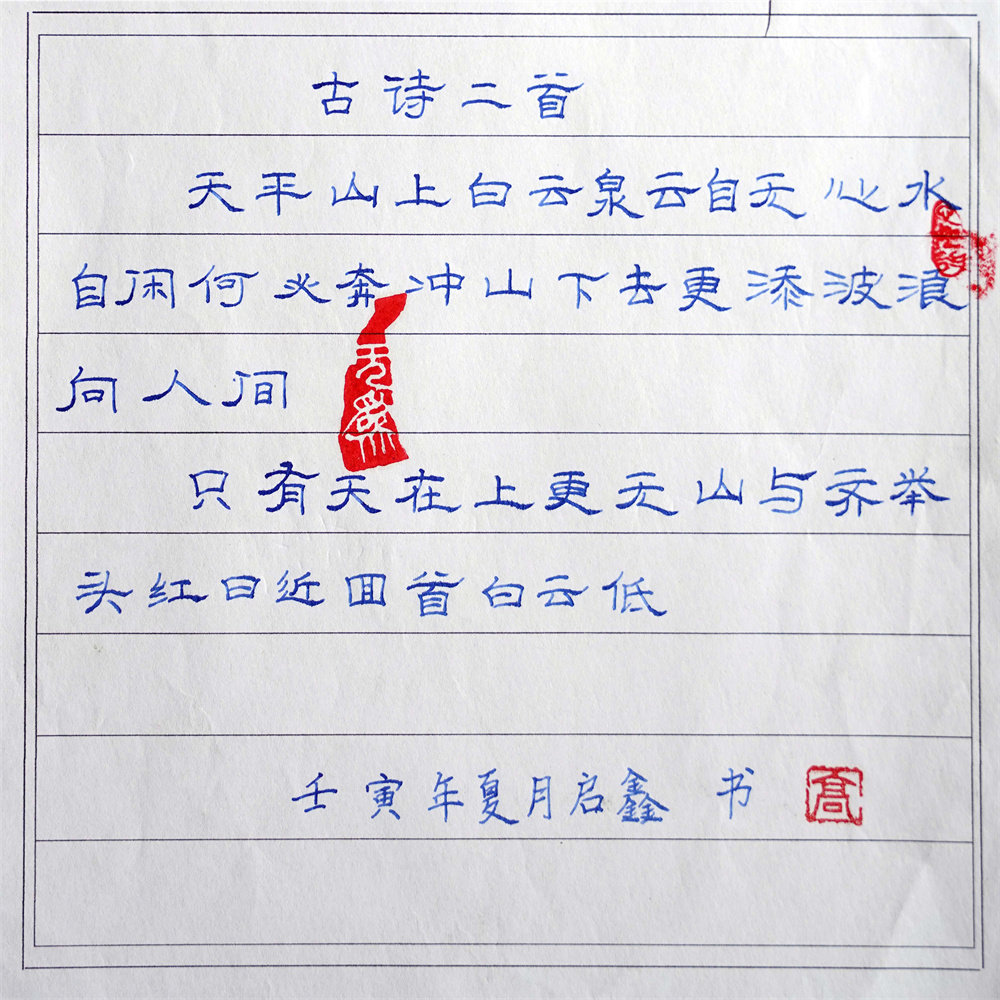 古诗二首
天平山上白云泉云自无心水
自闲何必奔冲山下去更添波浪
向人间
只有天在上更无山与齐举
头红日近回首白云低
壬寅年夏月启鑫书
高